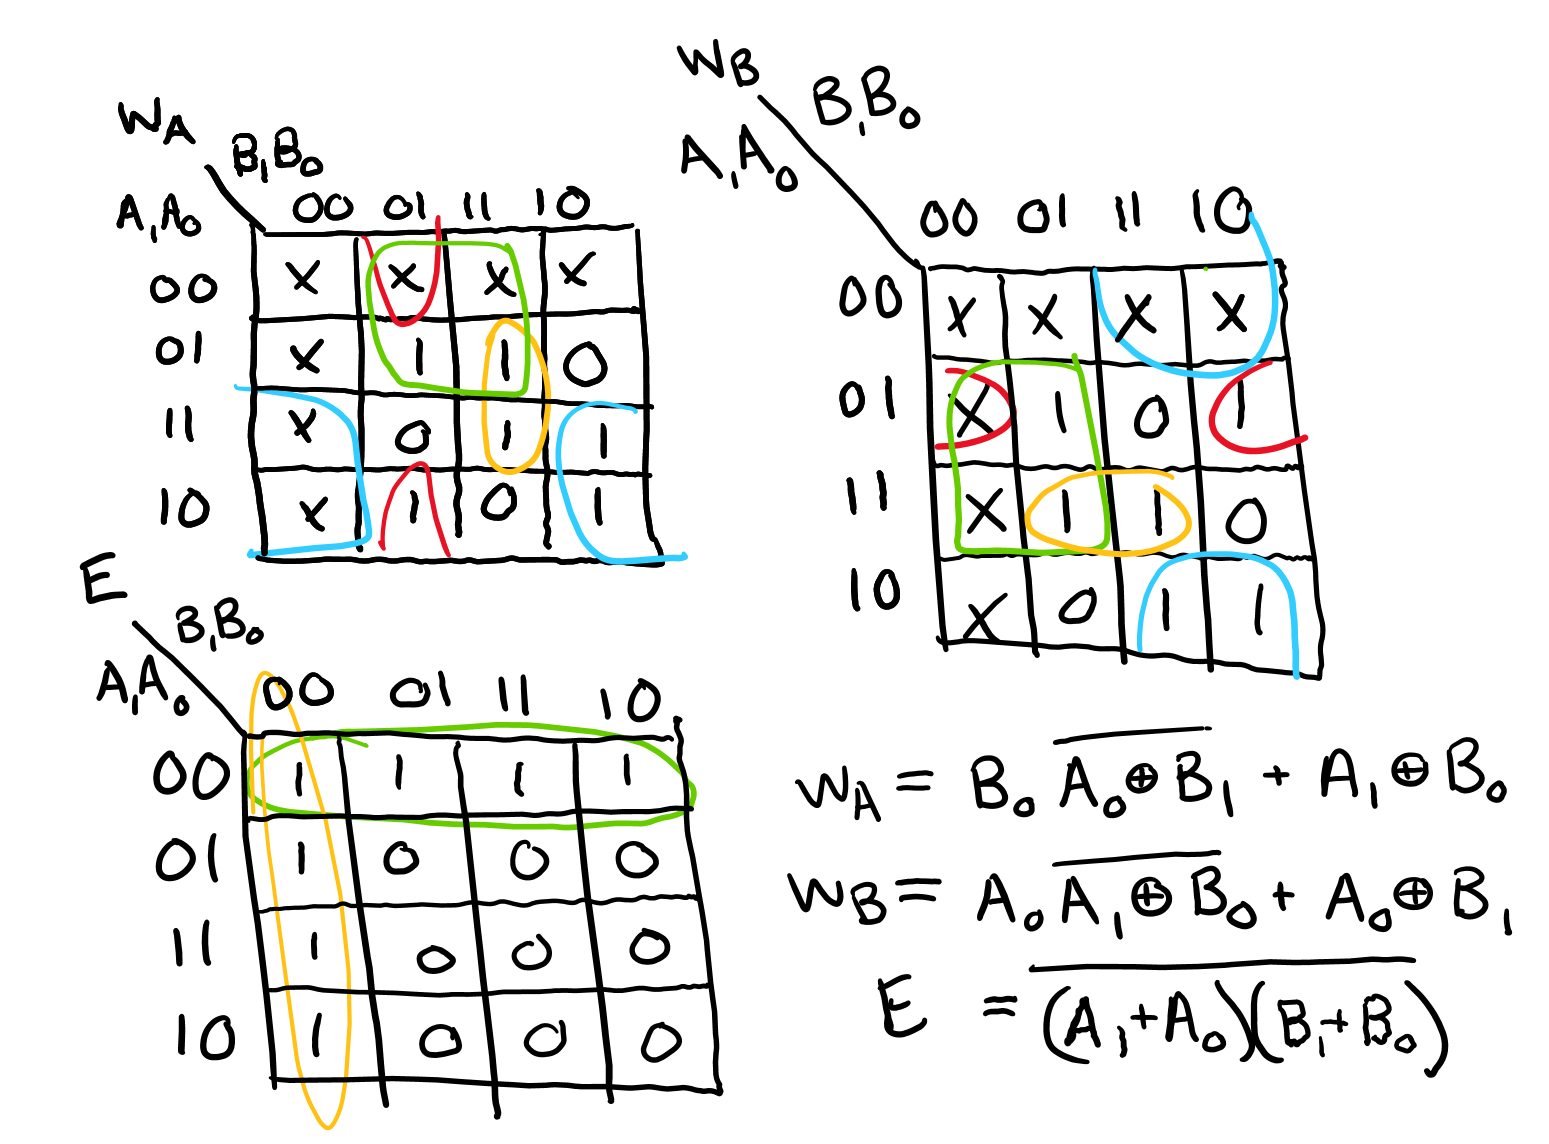 W_A
B₁B₀
A₁A₀
00 01 11 10
00 X X X X
01 X 1 1 0
11 X 0 1 1
10 X 1 0 1
W_B
B₁B₀
A₁A₀
00 01 11 10
00 X X X X
01 X 1 0 1
11 X 1 1 0
10 X 0 1 1
E
B₁B₀
A₁A₀
00 01 11 10
00 1 1 1 1
01 1 0 0 0
11 1 0 0 0
10 1 0 0 0
W_A = B₀ \overline{A₀ ⊕ B₁} + A₁ ⊕ B₀
W_B = A₀ \overline{A₁ ⊕ B₀} + A₀ ⊕ B₁
E = \overline{(A₁+A₀)(B₁+B₀)}